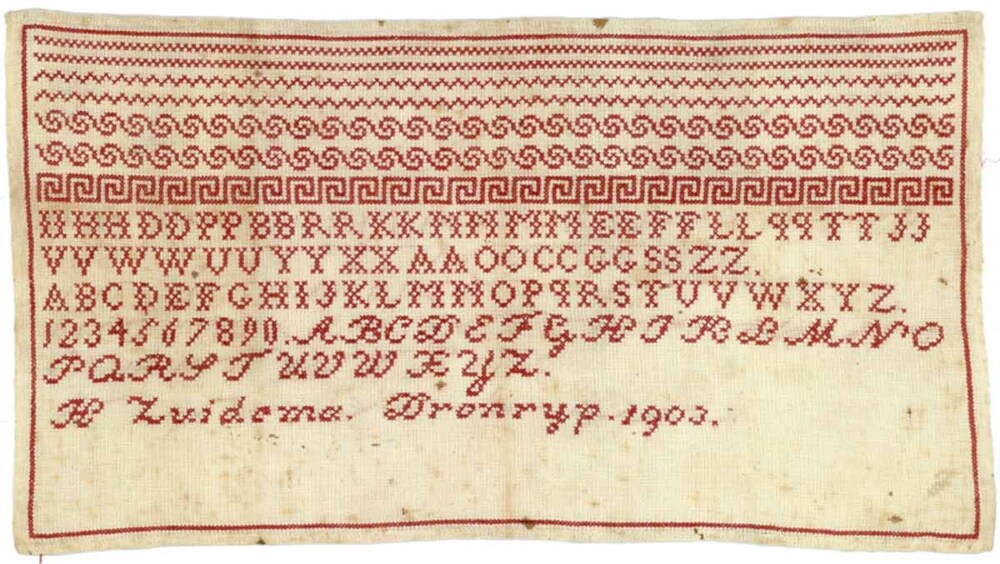 HHHDDPPBBRRKKMMMMEEFFLLqqTTJJ
VVWWUUYYXXAAOOCCGGSSZZ.
ABCDEFGHIJKLMNOPqRSTUVWXYZ.
1234567890. ABCDEFGHIKLMNO
PQRSTUVWXYZ.
H Zuidema. Dronryp. 1903.